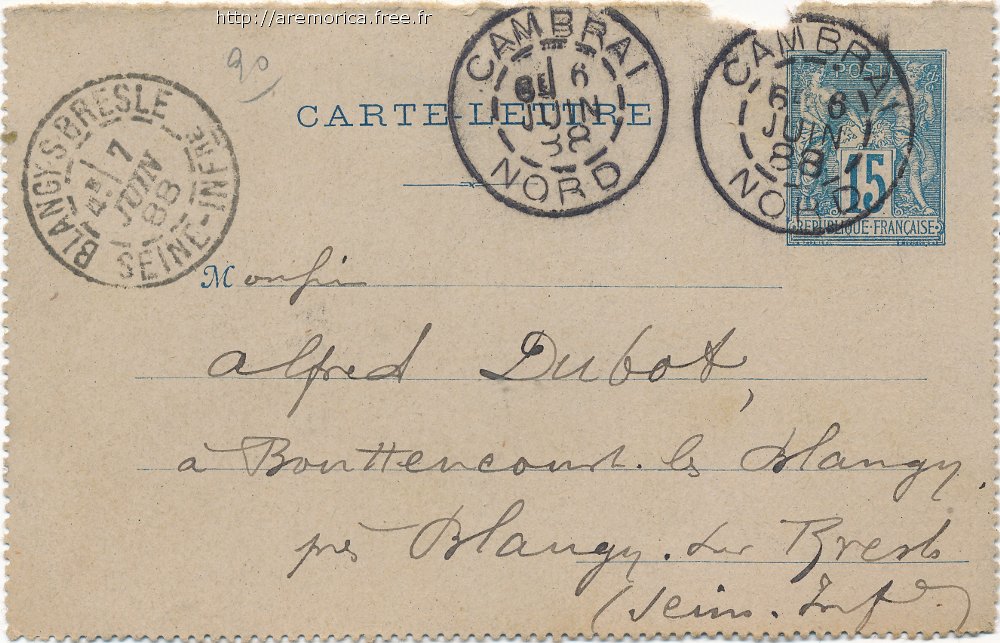 http://aremorica.free.fr
90
CAMBRAI
6 JUIN 88
NORD
CAMBRAI
6E 6
JUIN
88
NORD
POSTES
15
REPUBLIQUE FRANÇAISE
BLANGY-S-BRESLE
4E 7
JUIN
88
SEINE-INFRE
CARTE-LETTRE
Monsieur
Alfred Dubot,
à Bouttencourt-les Blangy,
près Blangy-sur Bresle
(Seine-Infre)